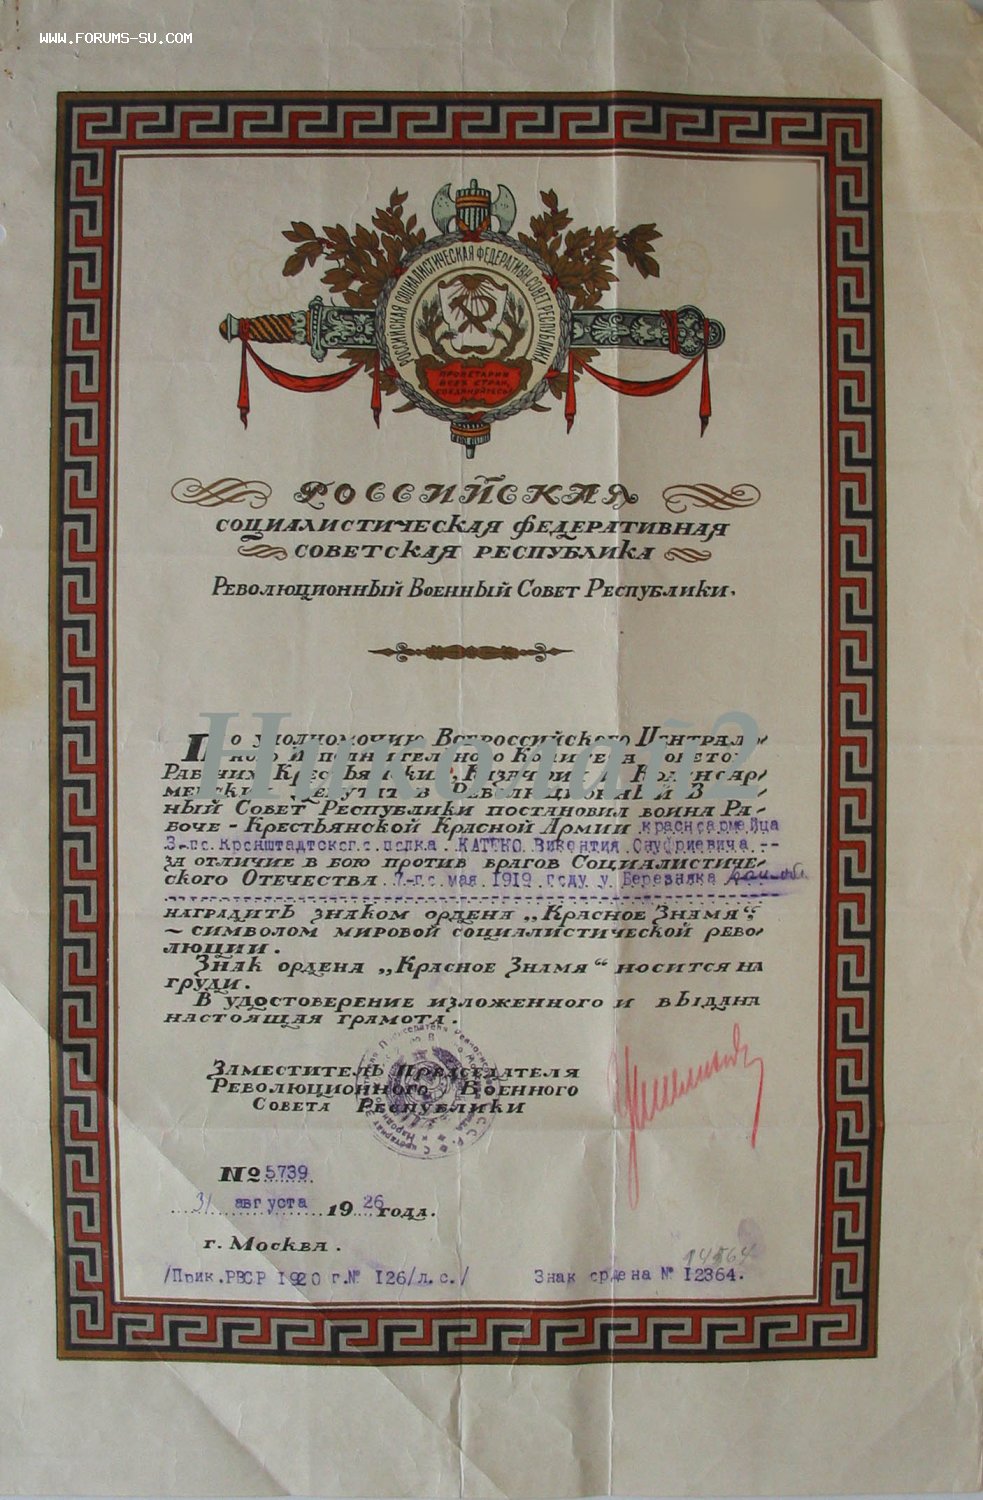 WWW.FORUMS-SU.COM
РОССИЙСКАЯ СОЦИАЛИСТИЧЕСКАЯ ФЕДЕРАТИВН. СОВЕТ. РЕСПУБЛИКА
ПРОЛЕТАРИИ
ВСЕХ СТРАН,
СОЕДИНЯЙТЕСЬ!
РОССИЙСКАЯ
СОЦИАЛИСТИЧЕСКАЯ ФЕДЕРАТИВНАЯ
СОВЕТСКАЯ РЕСПУБЛИКА
Революционный Военный Совет Республики.
Николай2
По уполномочию Всероссийского Централь-
Комитета
Рабочих Крестьянских, Казачьих и Красноар-
мейских Депутатов Революционный
ный Совет Республики постановил воина Ра-
боче-Крестьянской Красной Армии красноармейца
3-го Кронштадтского полка КАТЕНО Викентия
за отличие в бою против врагов Социалистиче-
ского Отечества 7-го мая 1919 году у Березняка
наградить знаком ордена „Красное Знамя",
- символом мировой социалистической рево-
люции.
Знак ордена „Красное Знамя" носится на
груди.
В удостоверение изложенного и выдана
настоящая грамота.
Заместитель Председателя
Революционного Военного
Совета Республики
№ 5739
31 августа 1926 года.
г. Москва.
14564
/Прик.РВСР 1920 г.№ 126/л.с./ Знак ордена № 12364.